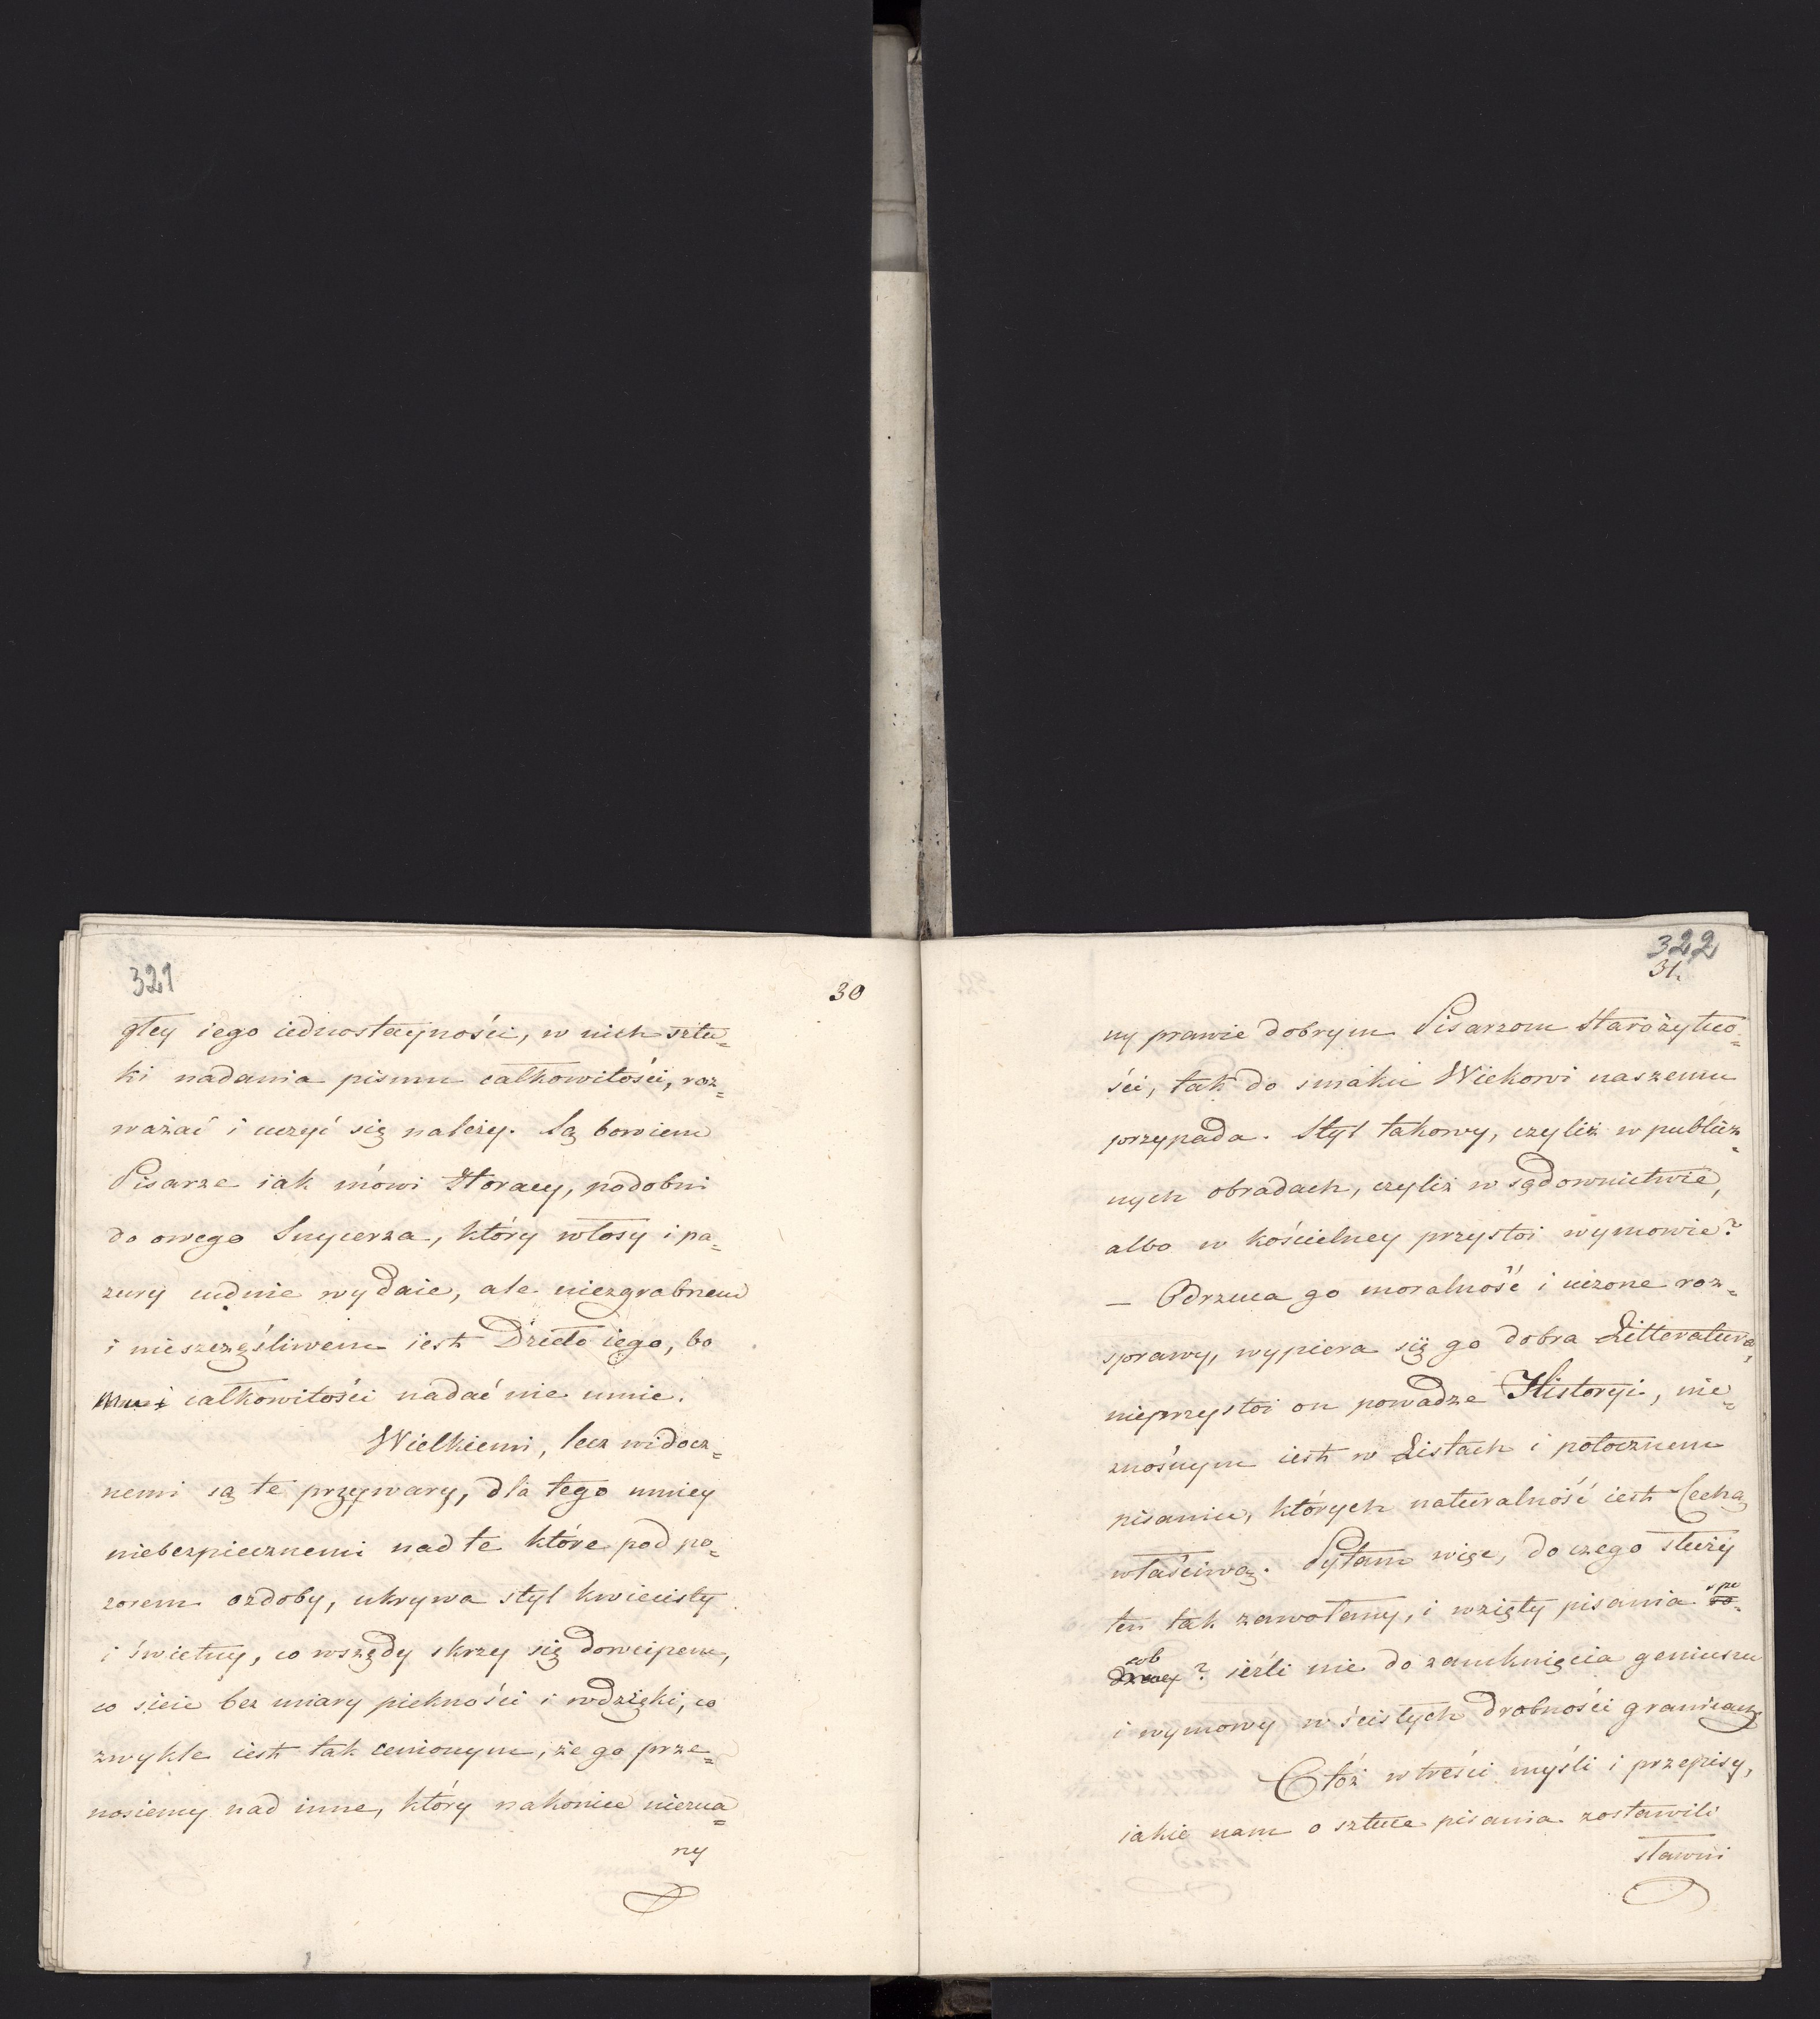 321
30
głey iego iednostayności, w nich sztu=
ki nadania pismu całkowitości, roz=
ważać i uczyć się należy. Są bowiem
Pisarze iak mówi Horacy, podobni
do owego Snycerza, który włosy i pa=
zury cudnie wydaie, ale niezgrabnem
i nieszczęśliwem iest Dzieło iego, bo
całkowitości nadać nie umie.
Wielkiemi, lecz widocz=
nemi są te przywary, dla tego mniey
niebezpiecznemi nad te które pod po=
zorem ozdoby, ukrywa styl kwiecisty
i świetny, co wszędy skrzy się dowcipem,
co sieie bez miary piękności i wdzięki, co
zwykle iest tak cenionym, że go prze=
nosiemy nad inne, który nakoniec niezna=
ny
322
31.
ny prawie dobrym Pisarzom Starożytno=
ści, tak do smaku Wiekowi naszemu
przypada. Styl takowy, czyliż w publicz=
nych obradach, czyliż w sądownictwie,
albo w kościelney przystoi wymowie?
— Odrzuca go moralność i uczone roz=
sprawy, wypiera się go dobra Litteratura,
nieprzystoi on powadze Historyi, nie=
znośnym iest w Listach i potocznem
pisaniu, których naturalność iest Cechą
właściwą. Pytam więc, do czego służy
ten tak zawołany, i wzięty pisania spo=
sob? ieźli nie do zamknięcia geniuszu
i wymowy w ścisłych drobności granicach.
Otóż w treści myśli i przepisy,
iakie nam o sztuce pisania zostawili
sławni